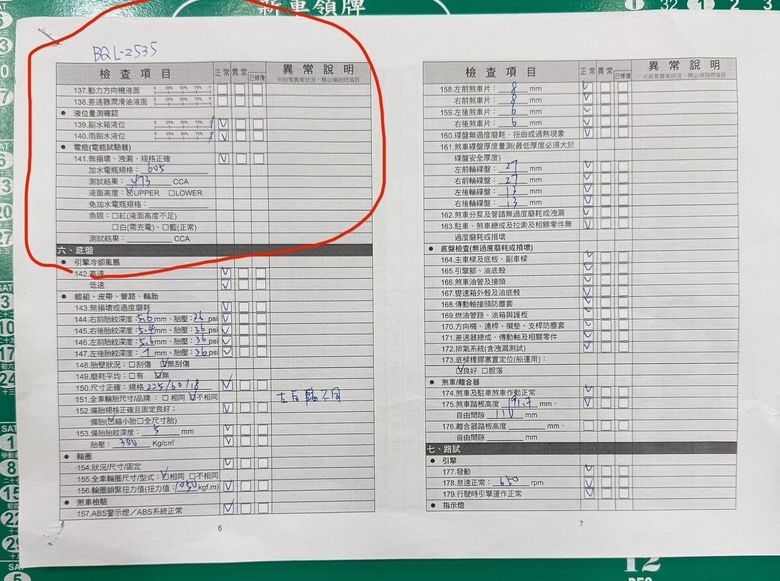 新車領牌
BQL-2535
檢查項目 正常 異常 已修復 異常說明
137.動力方向機液面
138.差速器潤滑油液面
● 液位量測確認
139.副水箱液位
140.雨刷水液位
● 電瓶(電瓶試驗器)
141.無損壞、洩漏、規格正確
加水電瓶規格：605
測試結果：473 CCA
液面高度：☑UPPER □LOWER
免加水電瓶規格：
魚眼：□紅(液面高度不足)
□白(需充電)、□藍(正常)
測試結果： CCA
六、底盤
● 引擎冷卻風扇
142.高速
低速
● 輥組、皮帶、管路、輪胎
143.無損壞或過度磨耗
144.右前胎紋深度：5.6mm、胎壓：36psi
145.右後胎紋深度：5.4mm、胎壓：36psi
146.左前胎紋深度：5.6mm、胎壓：36psi
147.左後胎紋深度：7mm、胎壓：36psi
148.胎壁狀況：□刮傷 ☑無刮傷
149.磨耗平均：□有 ☑無
150.尺寸正確：規格 225/60/18
151.全車輪胎尺寸/品牌：□相同 ☑不相同
152.備胎規格正確且固定良好；
備胎(☑縮小胎□全尺寸胎)
153.備胎胎紋深度：5 mm
胎壓：300 Kg/c㎡
● 輪圈
154.狀況/尺寸/固定
155.全車輪圈尺寸/型式：☑相同 □不相同
156.輪圈鎖緊扭力值(扭力值：1050kgf.m)
● 煞車檢驗
157.ABS警示燈／ABS系統正常
6
檢查項目 正常 異常 已修復 異常說明
158.左前煞車片：8 mm
右前煞車片：8 mm
159.左後煞車片：6 mm
右後煞車片：6 mm
160.碟盤無過度磨耗、扭曲或過熱現象
161.煞車碟盤厚度量測(最低厚度必須大於
碟盤安全厚度)
左前輪碟盤：27 mm
右前輪碟盤：27 mm
左後輪碟盤：13 mm
右後輪碟盤：13 mm
162.煞車分泵及管路無過度磨耗或洩漏
163.駐車、煞車總成及拉索及相關零件無
過度磨耗或損壞
● 底盤檢查(無過度磨耗或損壞)
164.主車樑及底板、副車樑
165.引擎腳、油底殼
166.煞車油管及接頭
167.變速箱外殼及油底殼
168.傳動軸接頭防塵套
169.燃油管路、油箱與護板
170.方向機、連桿、襯墊、支桿防塵套
171.差速器總成、傳動軸及相關零件
172.排氣系統(含洩漏測試)
173.底樑橡膠塞置定位(胎運用)：
☑良好 □脫落
● 煞車/離合器
174.煞車及駐車煞車作動正常
175.煞車踏板高度 mm、
自由間隙 110 mm
176.離合器踏板高度 mm、
自由間隙 mm
七、路試
● 引擎
177.發動
178.怠速正常：650 rpm
179.行駛時引擎運作正常
● 指示燈
7